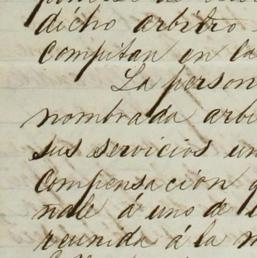 dicho arbitro
compitan en la
La person
nombrada arbi
sus servicios un
compensacion q
nale á uno de
reunida á la m